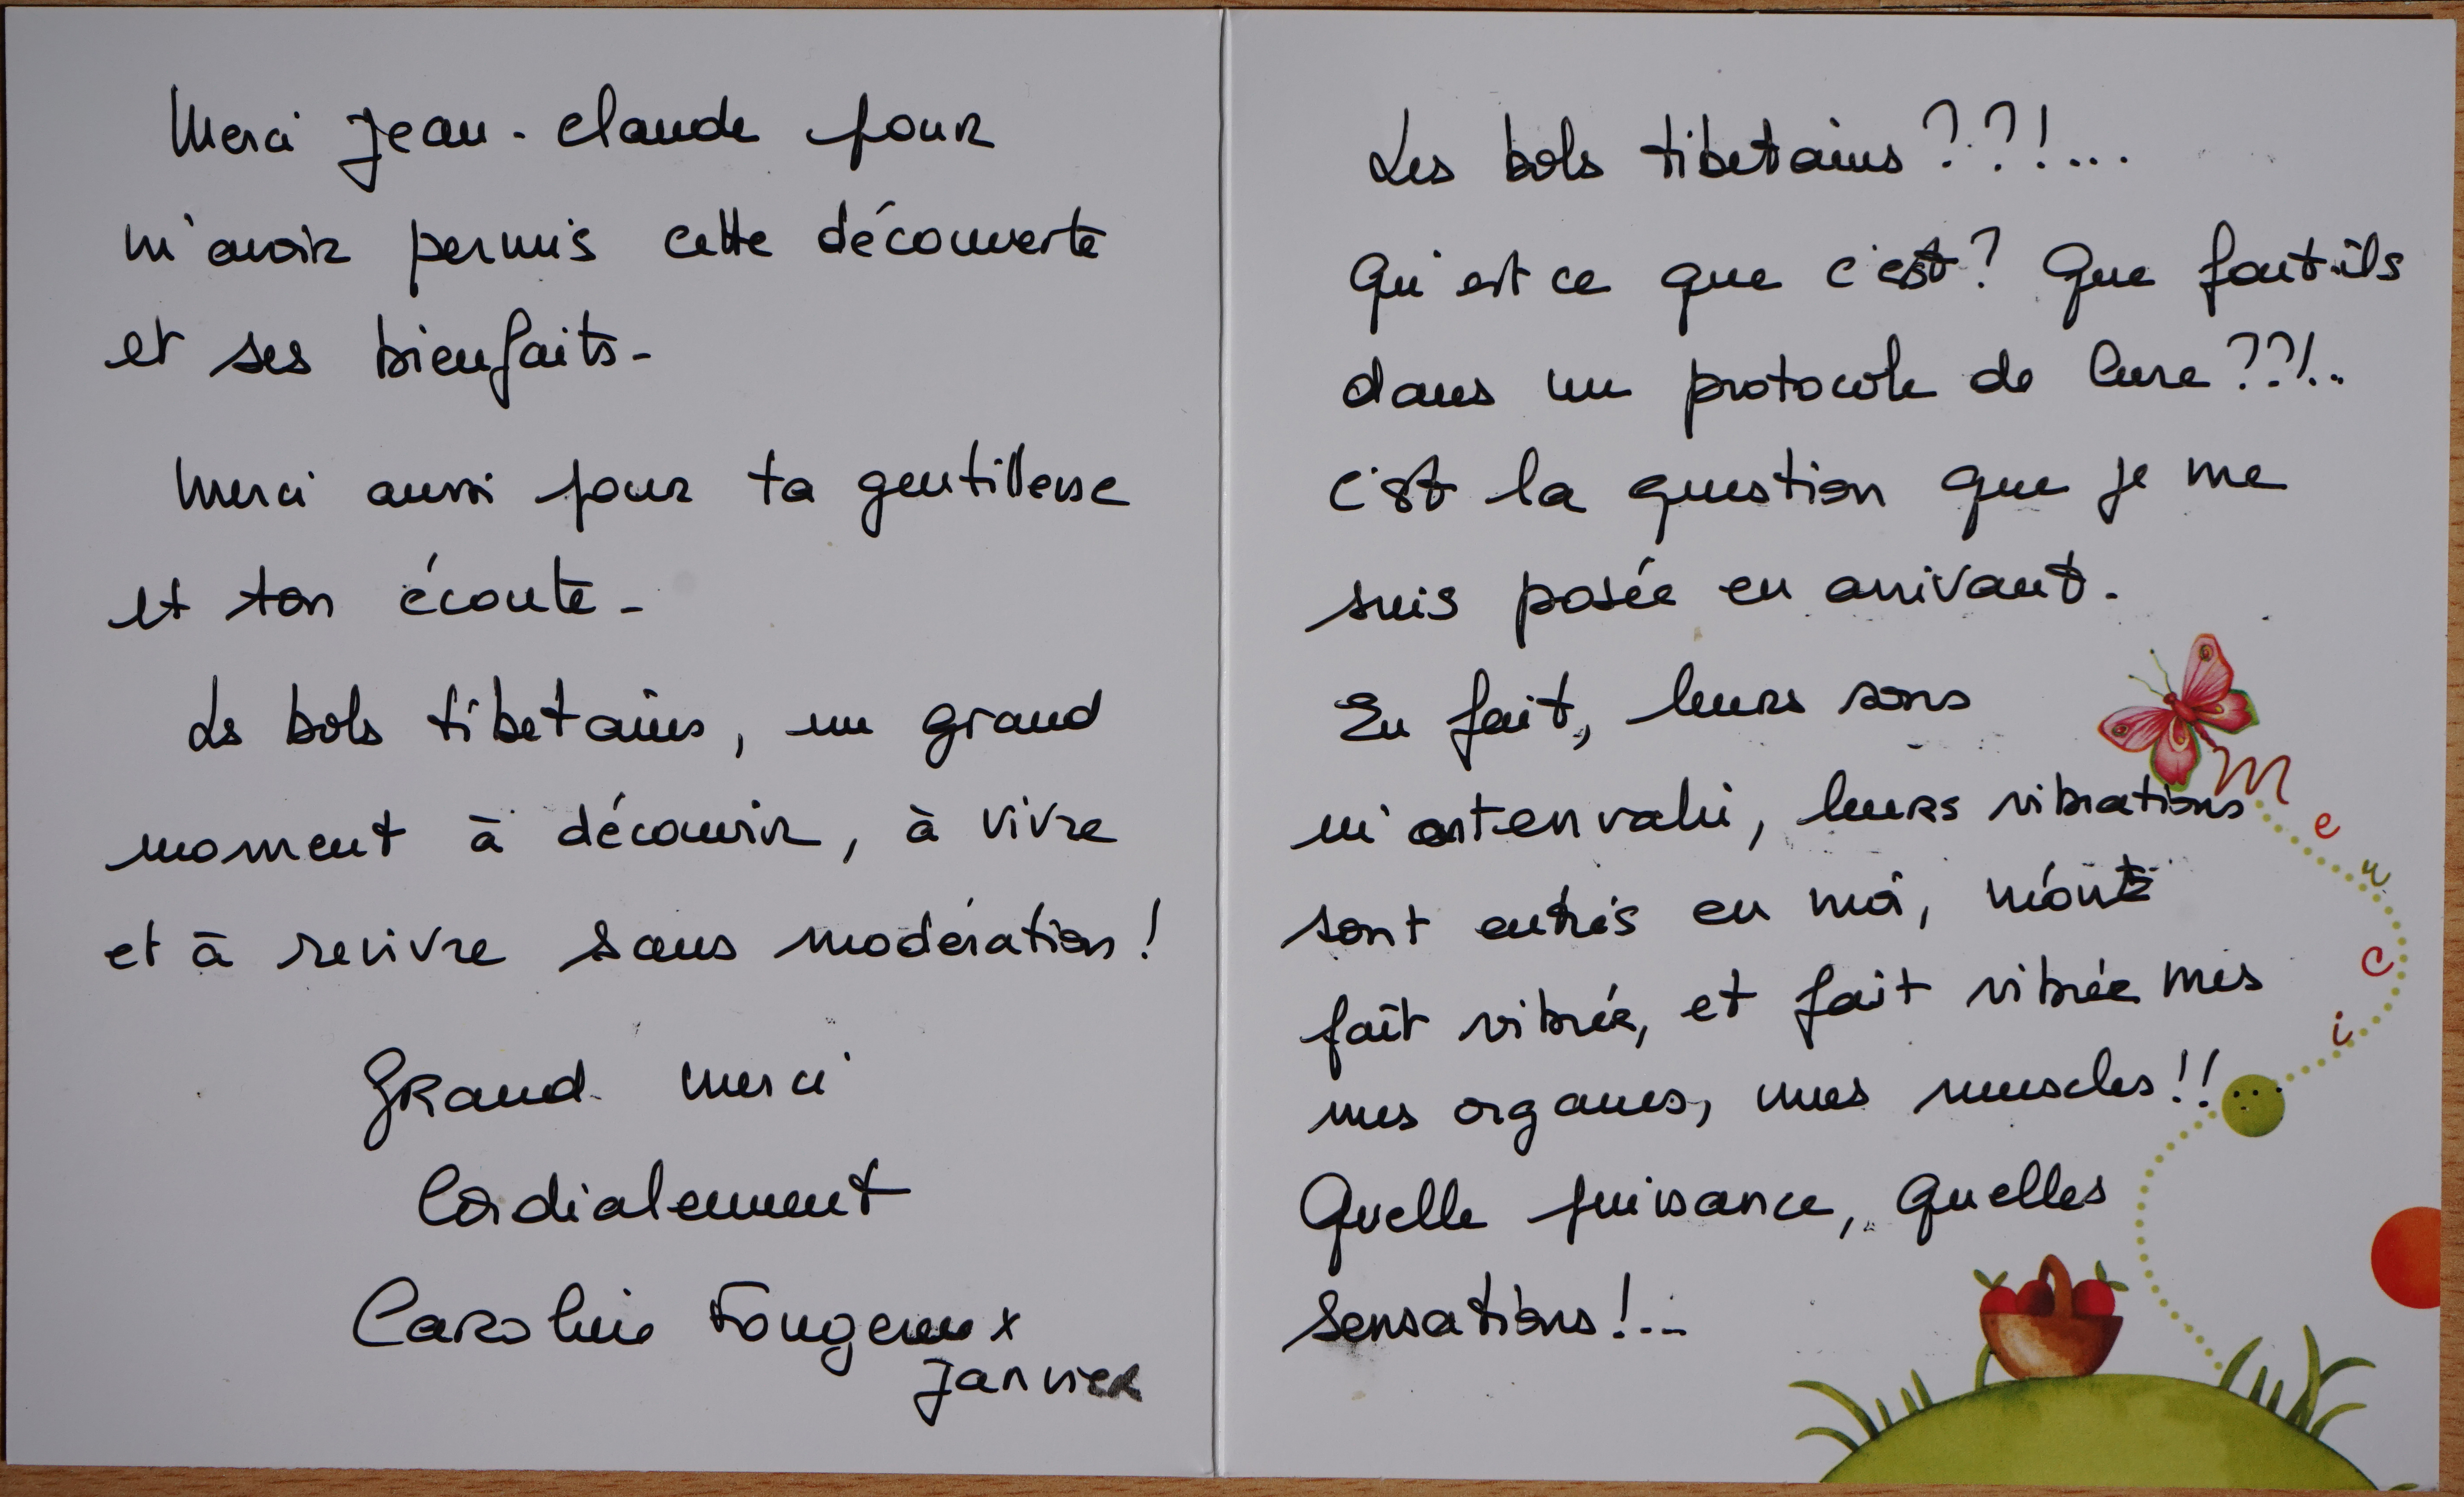 Merci Jean-Claude pour
m'avoir permis cette découverte
et ses bienfaits-
Merci aussi pour ta gentillesse
et ton écoute-
Les bols tibetains, un grand
moment à découvrir, à vivre
et à revivre sans modération!
Grand merci
Cordialement
Caroline Fougeroux
Janvier
Les bols tibetains??!...
Qu'est ce que c'est? Que font-ils
dans un protocole de Cure??!..
c'est la question que je me
suis posée en arrivant.
En fait, leurs sons
m'ont envahi, leurs vibrations
sont entrés en moi, m'ont
fait vibrée, et fait vibrée mes
mes organes, mes muscles!!
Quelle puissance, quelles
sensations!...
merci